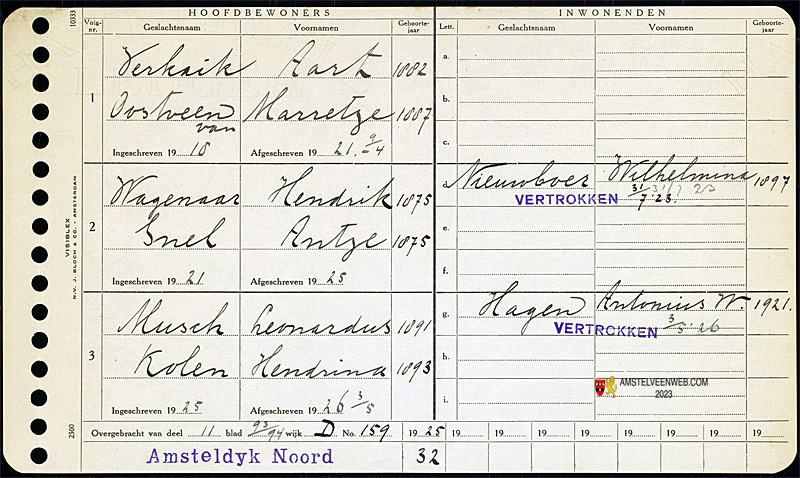 HOOFDBEWONERS
Volg-nr. Geslachtsnaam Voornamen Geboorte-jaar
1 Verkaik Aart 1882
Oostveen van Marretze 1887
Ingeschreven 19 18 Afgeschreven 19 21. 9/4
2 Wagenaar Hendrik 1875
Snel Antze 1875
Ingeschreven 19 21 Afgeschreven 19 25
3 Musch Leonardus 1891
Kolen Hendrina 1893
Ingeschreven 19 25 Afgeschreven 19 26 3/5
INWONENDEN
Lett. Geslachtsnaam Voornamen Geboorte-jaar
a.
b.
c.
d. Nieuwboer Wilhelmina 1897
VERTROKKEN 31/7 23. 31/7 23
e.
f.
g. Hagen Antonius W. 1921.
VERTROKKEN 3/5 26
h.
i.
AMSTELVEENWEB.COM
2023
Overgebracht van deel 11 blad 93/94 wijk D No. 159 19 25 19 19 19 19 19 19 19 19
Amsteldyk Noord 32
10333
VISIBLEX
N.V. J. BLOCH & CO. - AMSTERDAM
2500